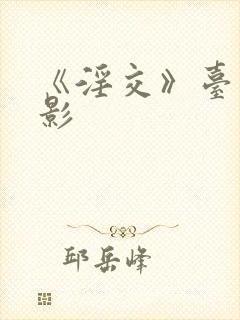 《淫交》臺
影
邱岳峰